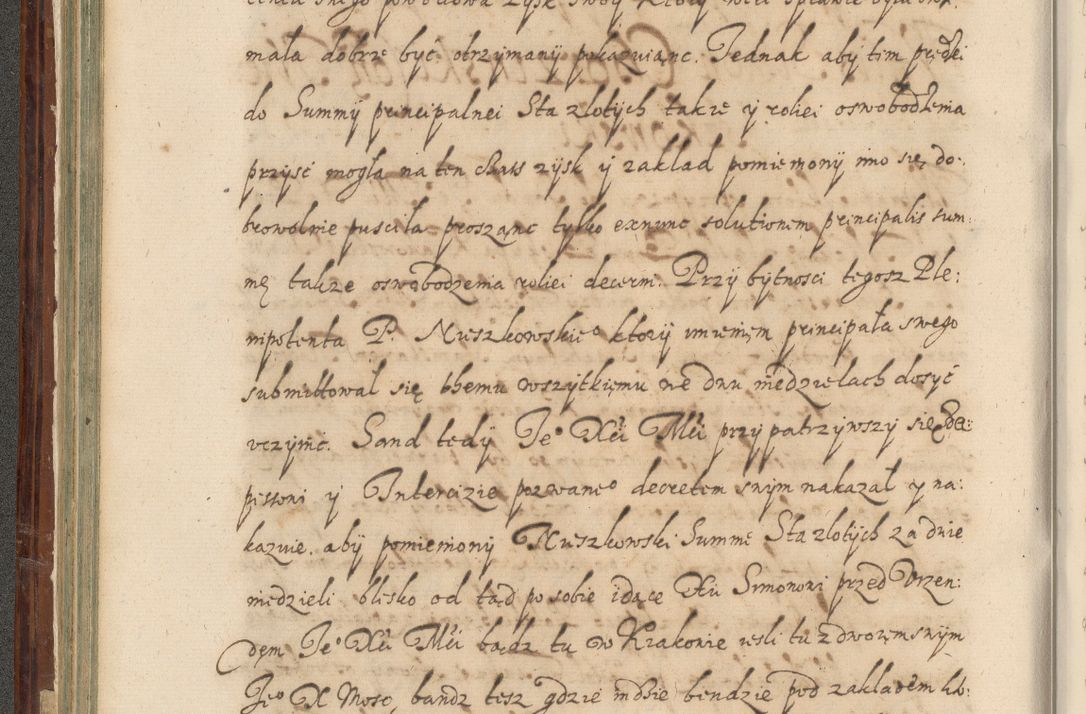 mała dobrze być otrzymany pokazuianc. Jednak aby tim prędzei
do Summy principalnei Sta zlotych takze y roliei oswobodzenia
przyść mogła na ten czass zysk y zaklad pomieniony imo się do:
browolnie pusciła proszanc tylko exnunc solutionem principalis sum:
mę takze oswobodzenia roliei decerni. Przy bytnosci tegosz Ple:
nipotenta P. Nuszkowskieo ktory imieniem principała swego
submittował się themu wszytkiemu we dwu niedzielach dosyć
vczynić. Sand tedy Jeo Xci Mci przypatrzywszy się
pissoni y Intercizie pozwaneo decretem snym nakazał y na:
kazuie. aby pomieniony Nuszkowski Summe Sta zlotych za dwie
niedzieli blisko od tąd po sobie idące Xu Simonowi przed Vrzen:
dem Jeo Xci Mci bądz tu w Krakowie iesli tu z dworem snym
Jeo X Mosc, bandz tesz gdzie indzie bendzie pod zakladem